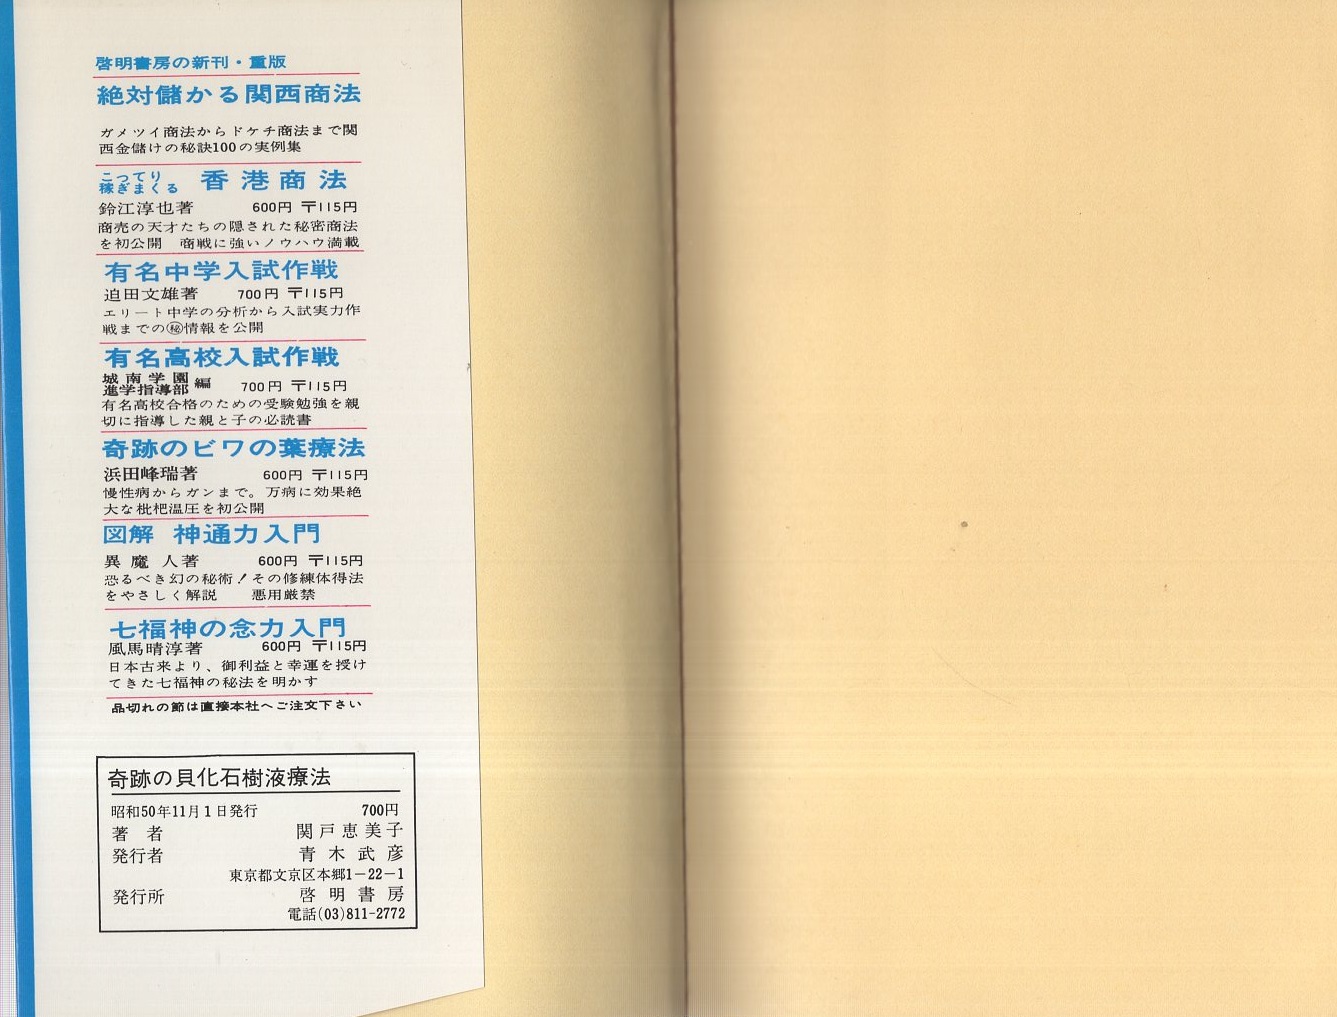 啓明書房の新刊・重版
絶対儲かる関西商法
ガメツイ商法からドケチ商法まで関
西金儲けの秘訣100の実例集
こってり
稼ぎまくる 香港商法
鈴江淳也著 600円 〒115円
商売の天才たちの隠された秘密商法
を初公開 商戦に強いノウハウ満載
有名中学入試作戦
迫田文雄著 700円 〒115円
エリート中学の分析から入試実力作
戦までの㊙情報を公開
有名高校入試作戦
城南学園
進学指導部 編 700円 〒115円
有名高校合格のための受験勉強を親
切に指導した親と子の必読書
奇跡のビワの葉療法
浜田峰瑞著 600円 〒115円
慢性病からガンまで。万病に効果絶
大な枇杷温圧を初公開
図解 神通力入門
異魔人著 600円 〒115円
恐るべき幻の秘術！その修練体得法
をやさしく解説 悪用厳禁
七福神の念力入門
風馬晴淳著 600円 〒115円
日本古来より、御利益と幸運を授け
てきた七福神の秘法を明かす
品切れの節は直接本社へご注文下さい
奇跡の貝化石樹液療法
昭和50年11月1日発行 700円
著者 関戸恵美子
発行者 青木武彦
東京都文京区本郷1-22-1
発行所 啓明書房
電話(03)811-2772